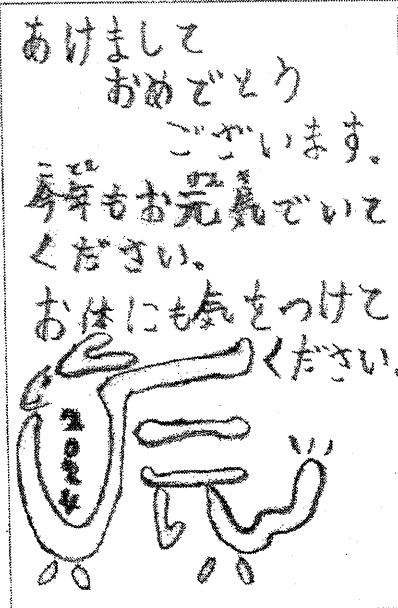 あけまして
おめでとう
ございます。
今年もお元気でいて
ください。
お体にも気をつけて
ください。
2024